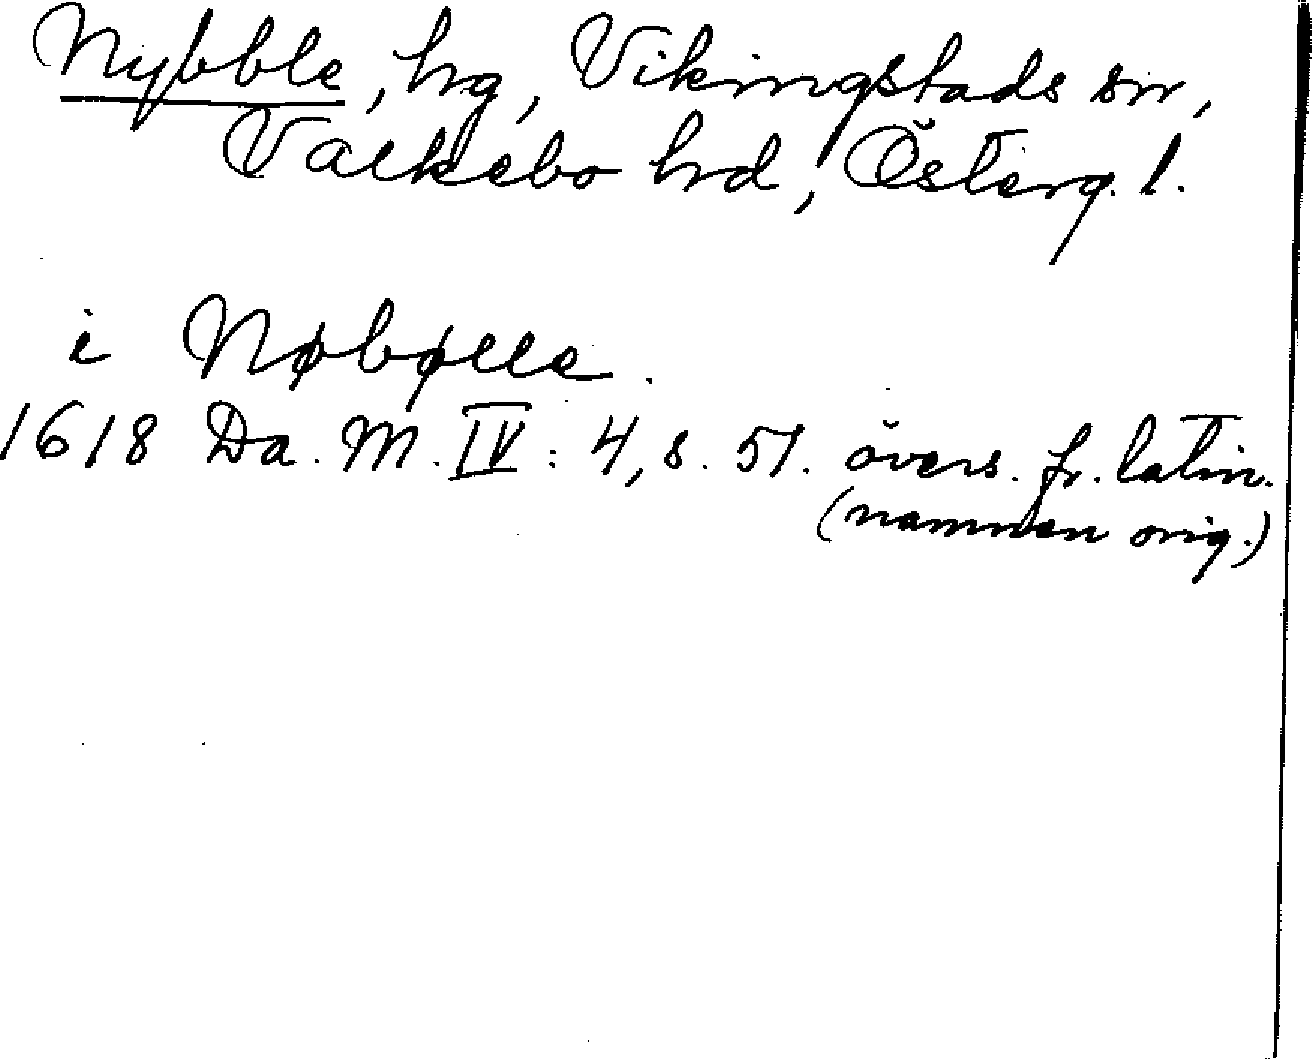 Nybble, hg, Vikingstads sn,
Valkebo hd, Österg. l.
i Nøbølle.
1618 Da. M. IV: 4, s. 51. övers. fr. latin.
(namnen orig.)